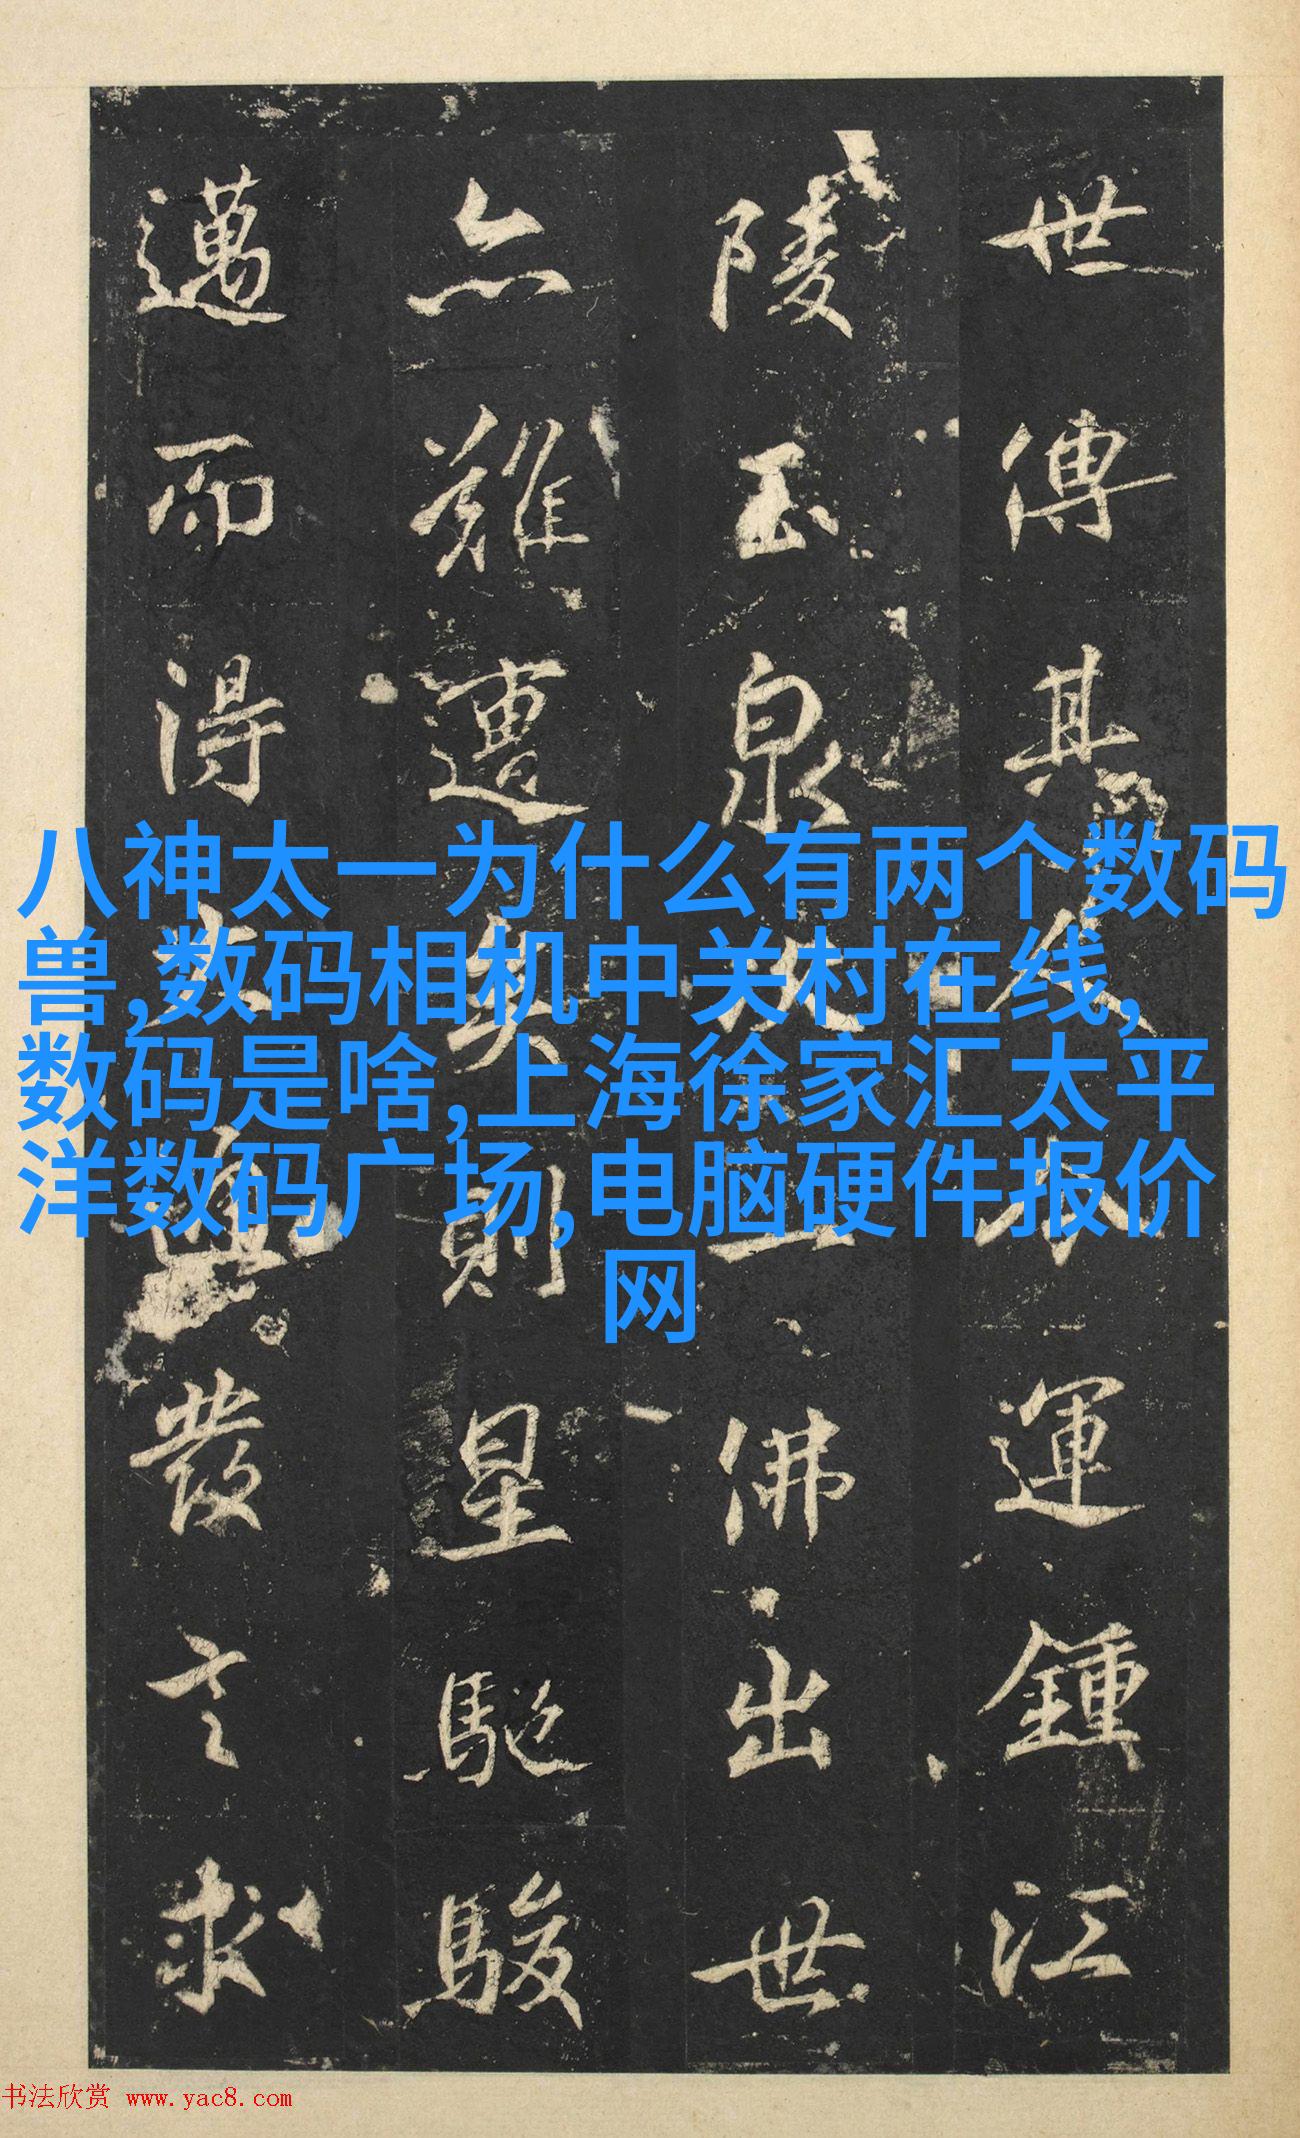 世傳其運鍾江
陵玉泉佛出世
亦難遭矣則星馳駿
邁而得發言求
八神太一为什么有两个数码
兽,数码相机中关村在线,
数码是啥,上海徐家汇太平
洋数码广场,电脑硬件报价
网
书法欣赏 www.yac8.com